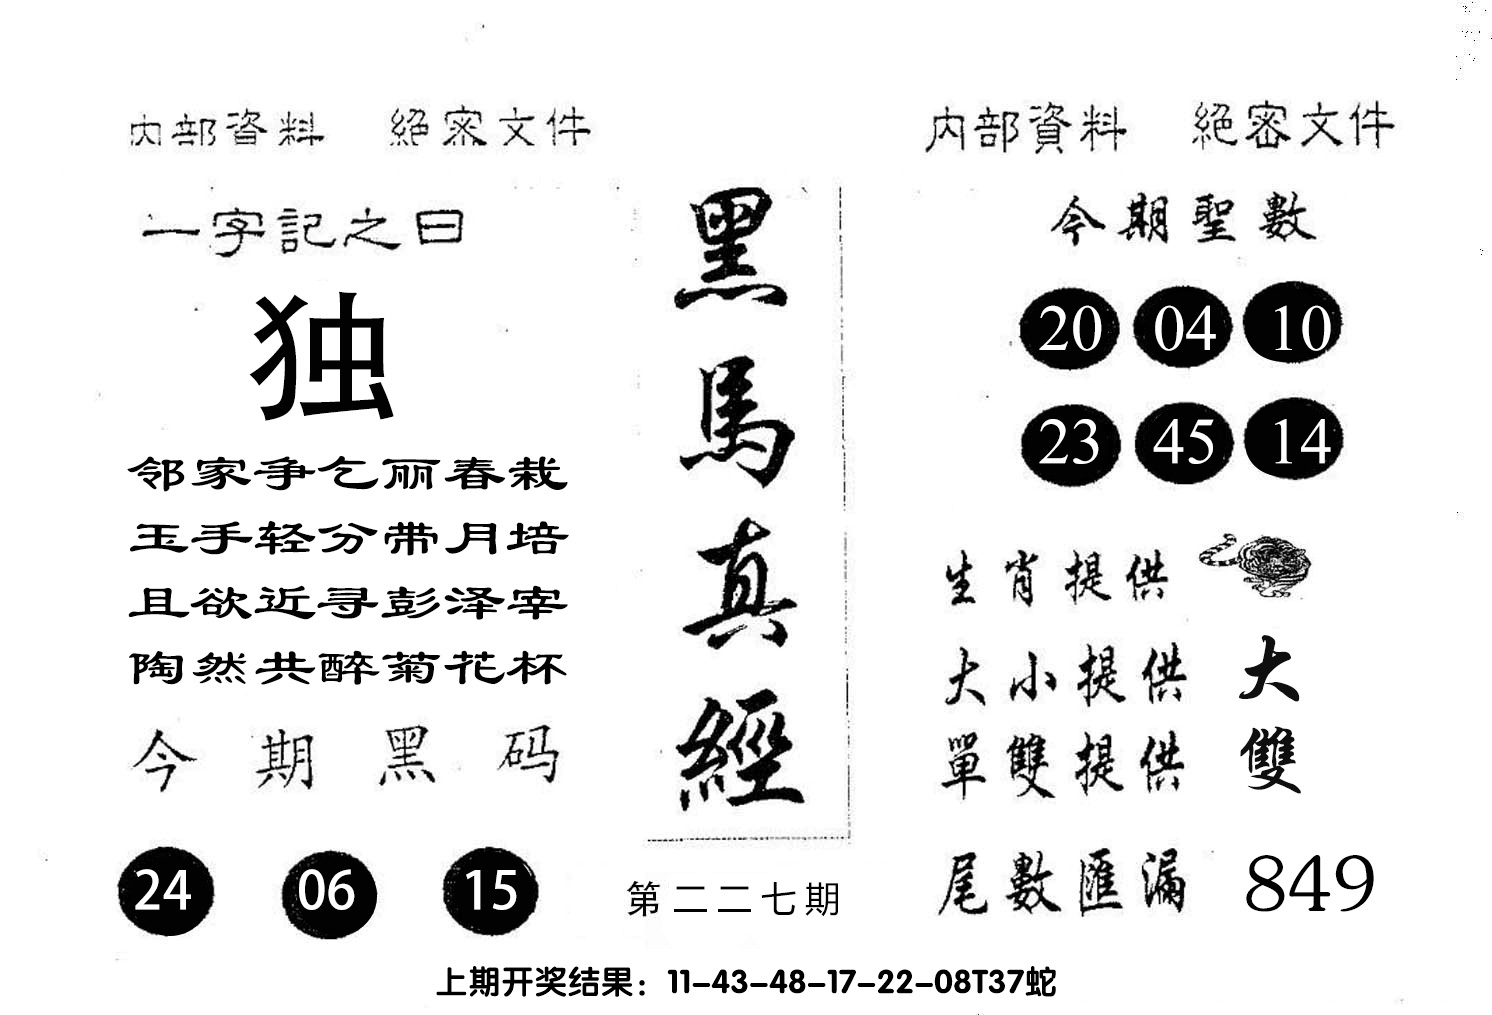 内部資料 絕密文件
一字記之曰
独
邻家争乞丽春栽
玉手轻分带月培
且欲近寻彭泽宰
陶然共醉菊花杯
今期黑码
24 06 15
黑馬真經
第二二七期
内部資料 絕密文件
今期聖數
20 04 10
23 45 14
生肖提供
大小提供 大
單雙提供 雙
尾數匯漏 849
上期开奖结果：11-43-48-17-22-08T37蛇